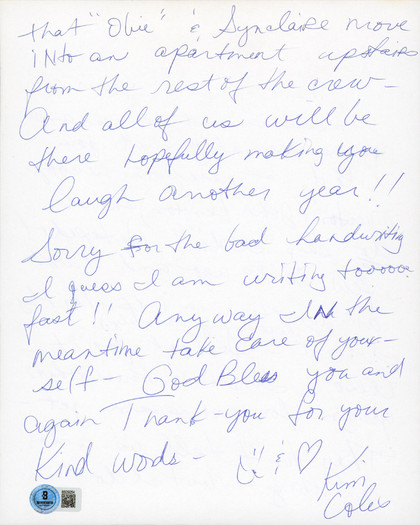 that "Obie" & Synclaire move
INto an apartment upstairs
from the rest of the crew -
And all of us will be
there hopefully making you
laugh another year!!
Sorry for the bad handwriting
I guess I am writing tooooo
fast!! Anyway IN the
meantime take care of your-
self - God Bless you and
again Thank-you for your
Kind words - & ♡
Kim
Coles